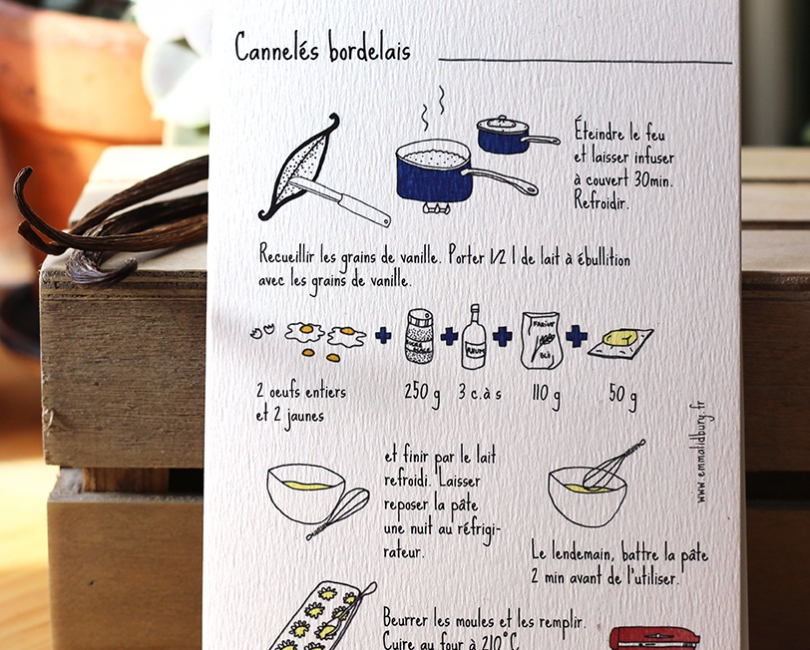 Cannelés bordelais
Éteindre le feu
et laisser infuser
à couvert 30min.
Refroidir.
Recueillir les grains de vanille. Porter 1/2 l de lait à ébullition
avec les grains de vanille.
RHUM
FARINE
BLÉ
2 oeufs entiers
et 2 jaunes
250 g
3 c.à s
110 g
50 g
www.emmalidbury.fr
et finir par le lait
refroidi. Laisser
reposer la pâte
une nuit au réfrigi-
rateur.
Le lendemain, battre la pâte
2 min avant de l'utiliser.
Beurrer les moules et les remplir.
Cuire au four à 210°C